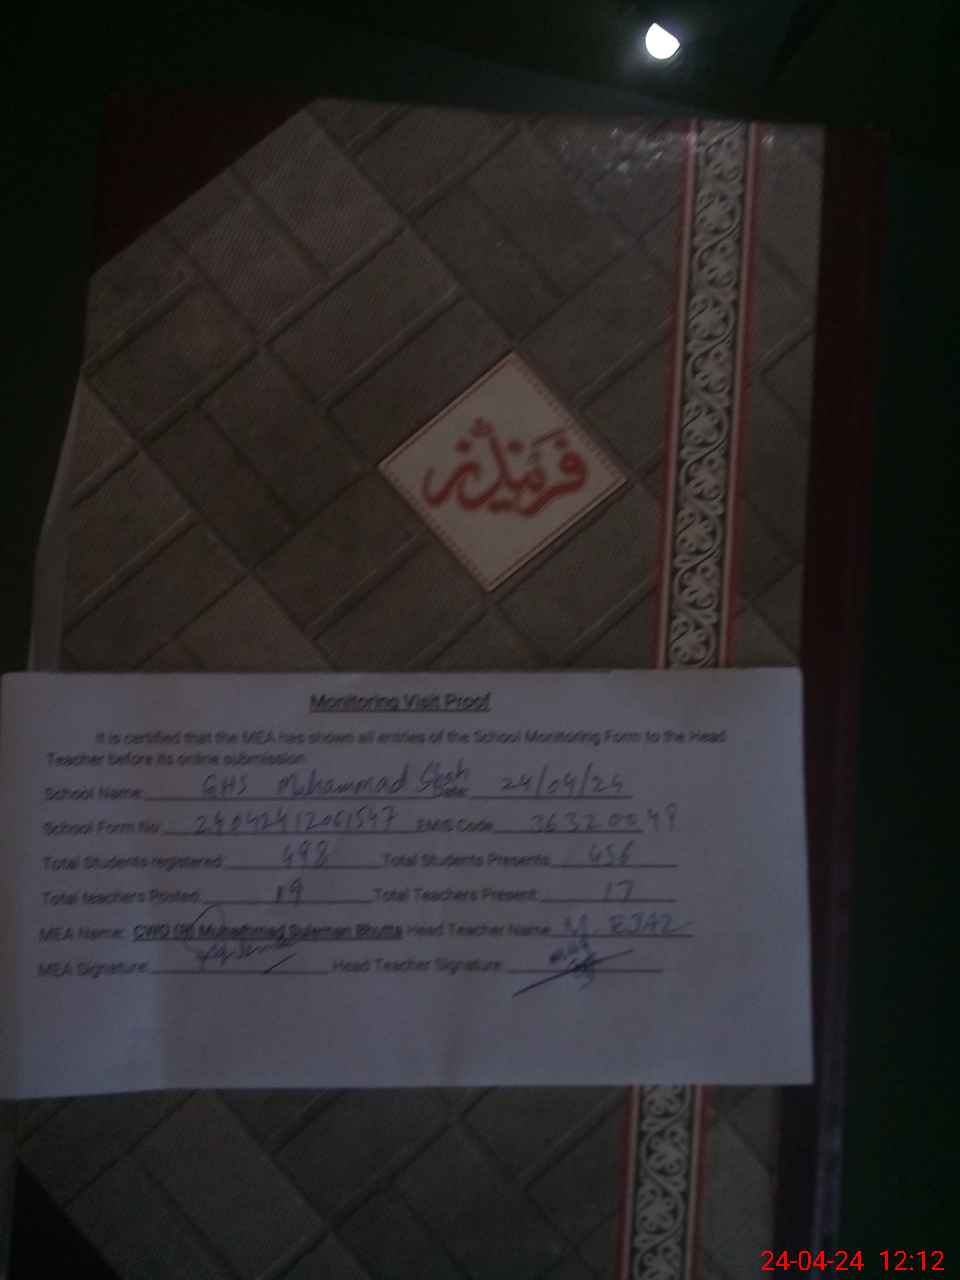 فرینڈز
Monitoring Visit Proof
It is certified that the MEA has shown all entries of the School Monitoring Form to the Head
Teacher before its online submission
School Name: GHS Muhammad Shah Date: 24/04/24
School Form No: 24042412061547 EMIS Code: 36320049
Total Students registered: 498 Total Students Presents: 456
Total teachers Posted: 19 Total Teachers Present: 17
MEA Name: CWO (R) Muhammad Suleman Bhutta Head Teacher Name: M. EJAZ
MEA Signature: Head Teacher Signature:
24-04-24 12:12